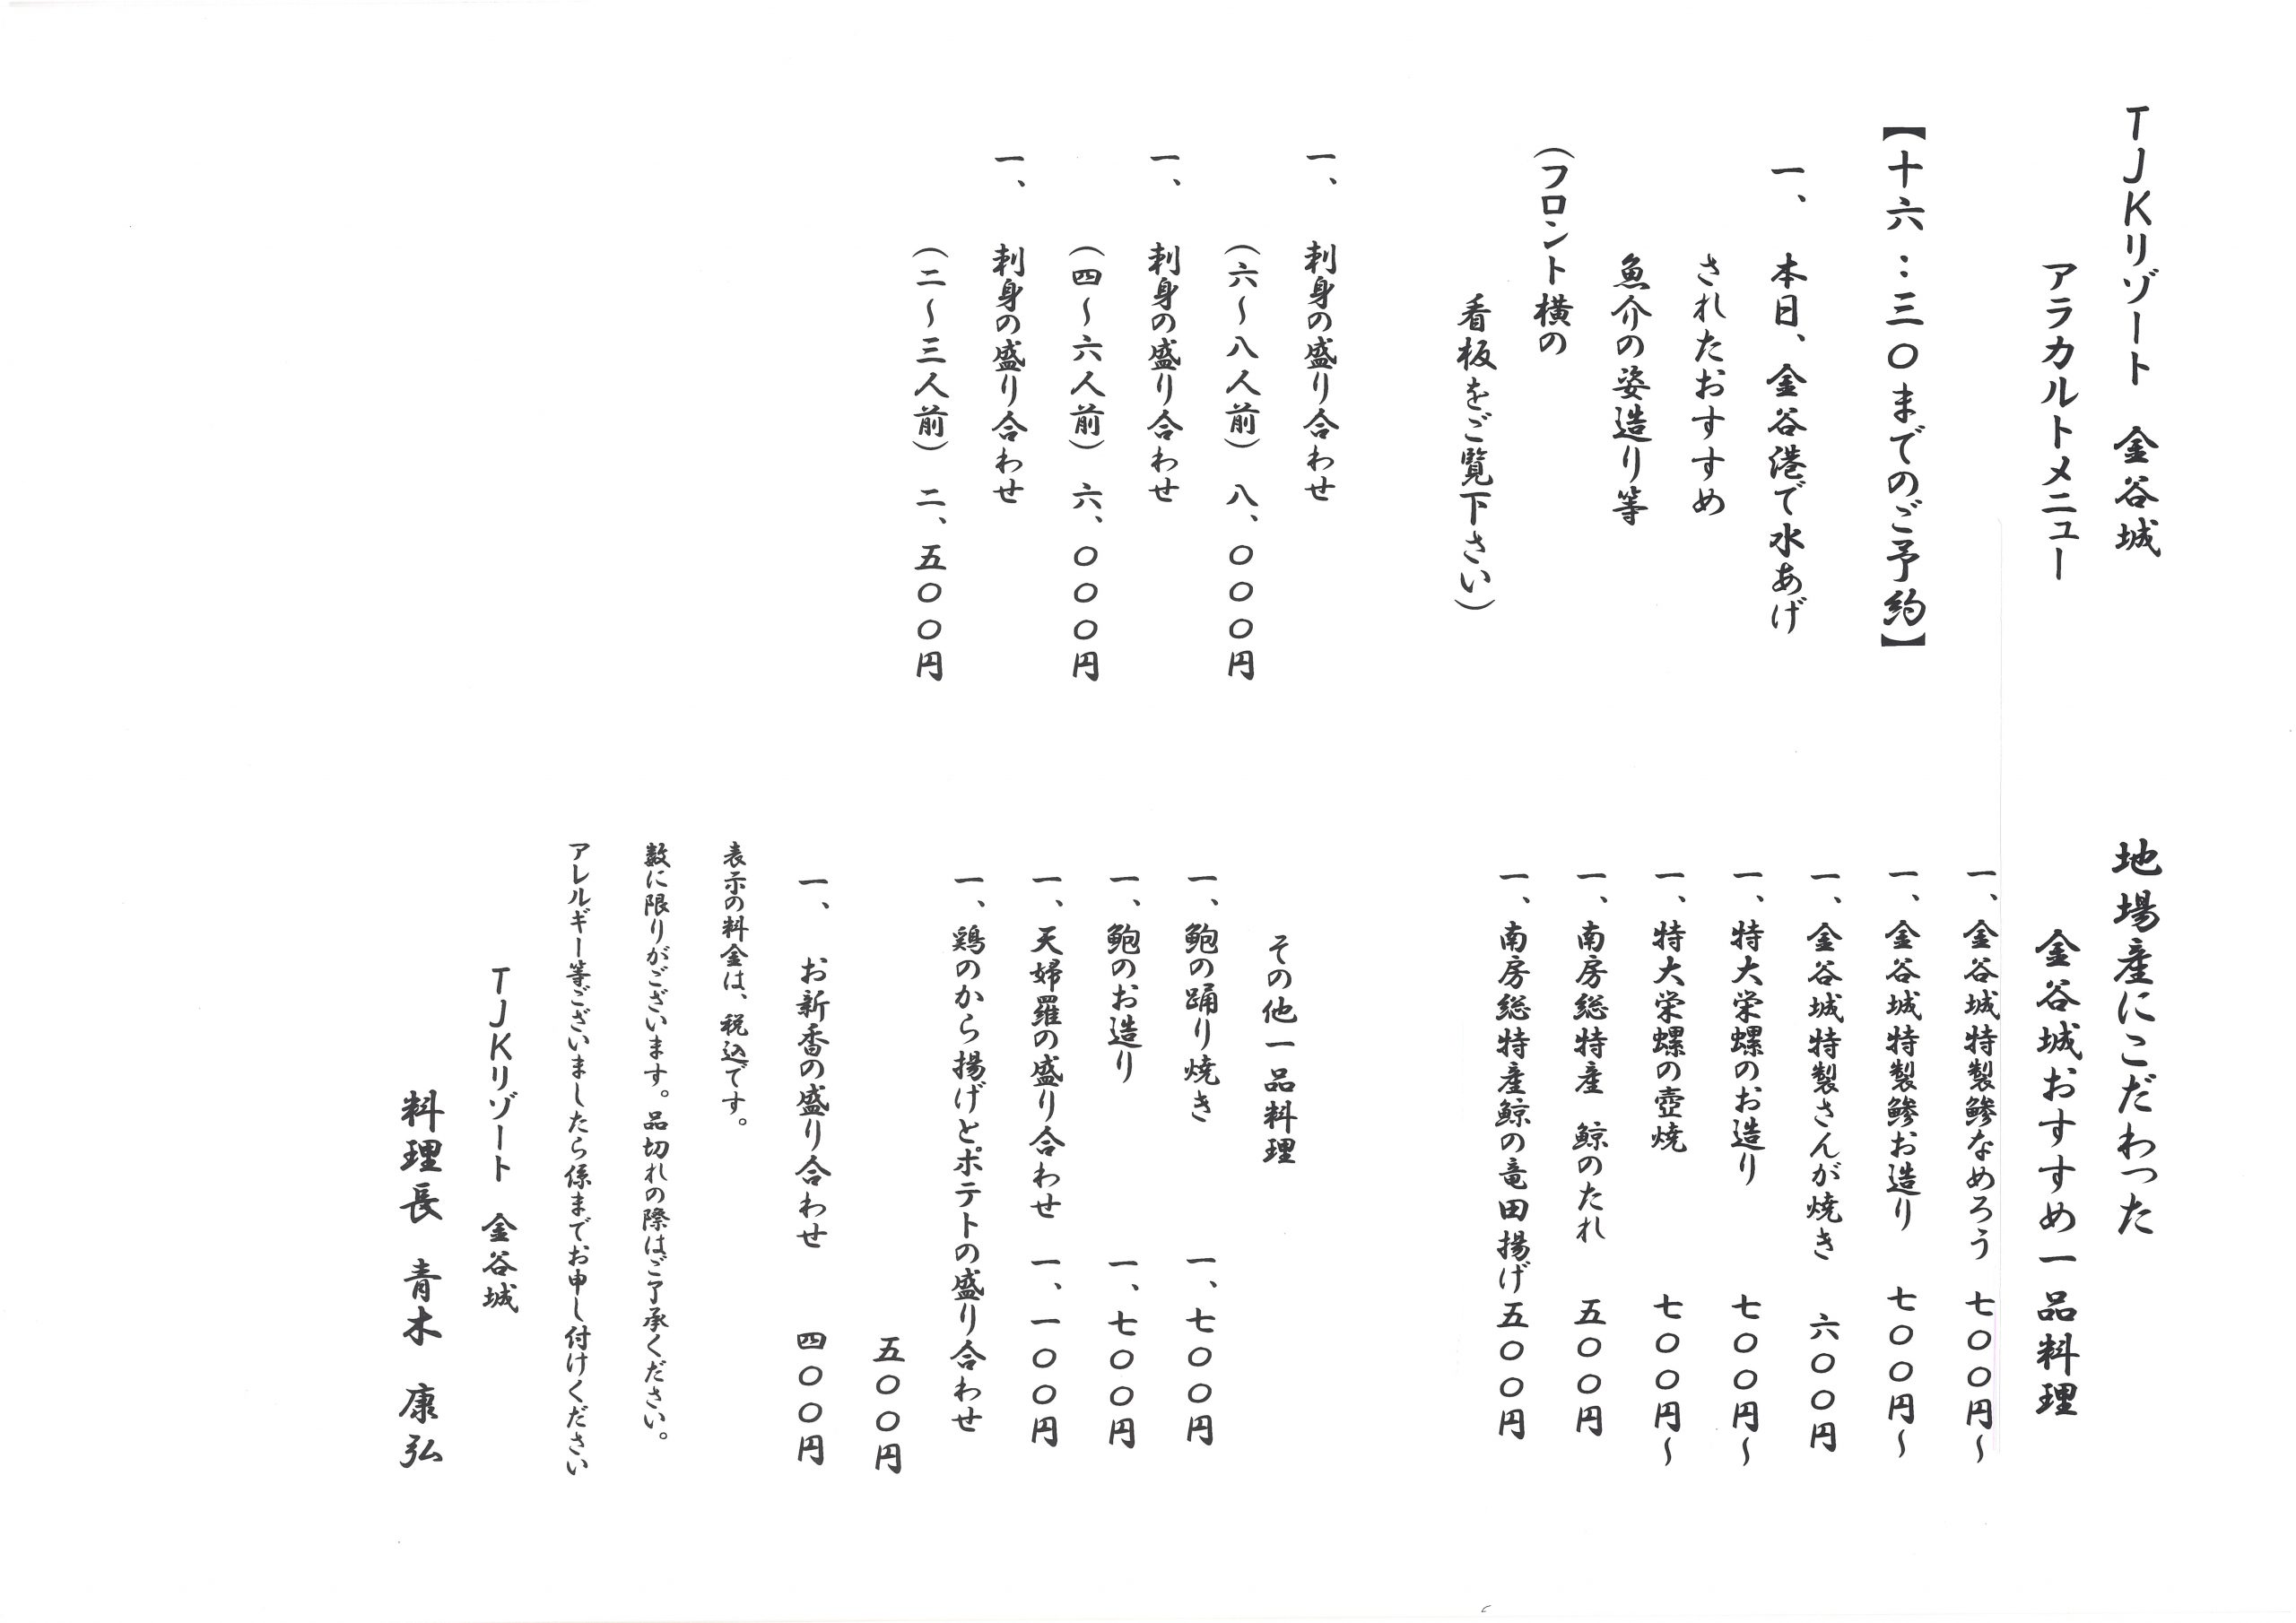 TJKリゾート 金谷城
アラカルトメニュー
【十六:三〇までのご予約】
一、 本日、金谷港で水あげ
されたおすすめ
魚介の姿造り等
(フロント横の
看板をご覧下さい)
一、 刺身の盛り合わせ
(六~八人前) 八、〇〇〇円
一、 刺身の盛り合わせ
(四~六人前) 六、〇〇〇円
一、 刺身の盛り合わせ
(二~三人前) 二、五〇〇円
地場産にこだわった
金谷城おすすめ一品料理
一、金谷城特製鰺なめろう 七〇〇円~
一、金谷城特製鰺お造り 七〇〇円~
一、金谷城特製さんが焼き 六〇〇円
一、特大栄螺のお造り 七〇〇円~
一、特大栄螺の壺焼 七〇〇円~
一、南房総特産 鯨のたれ 五〇〇円
一、南房総特産鯨の竜田揚げ五〇〇円
その他一品料理
一、鮑の踊り焼き 一、七〇〇円
一、鮑のお造り 一、七〇〇円
一、天婦羅の盛り合わせ 一、一〇〇円
一、鶏のから揚げとポテトの盛り合わせ
五〇〇円
一、 お新香の盛り合わせ 四〇〇円
表示の料金は、税込です。
数に限りがございます。品切れの際はご了承ください。
アレルギー等ございましたら係までお申し付けください
TJKリゾート 金谷城
料理長 青木 康弘